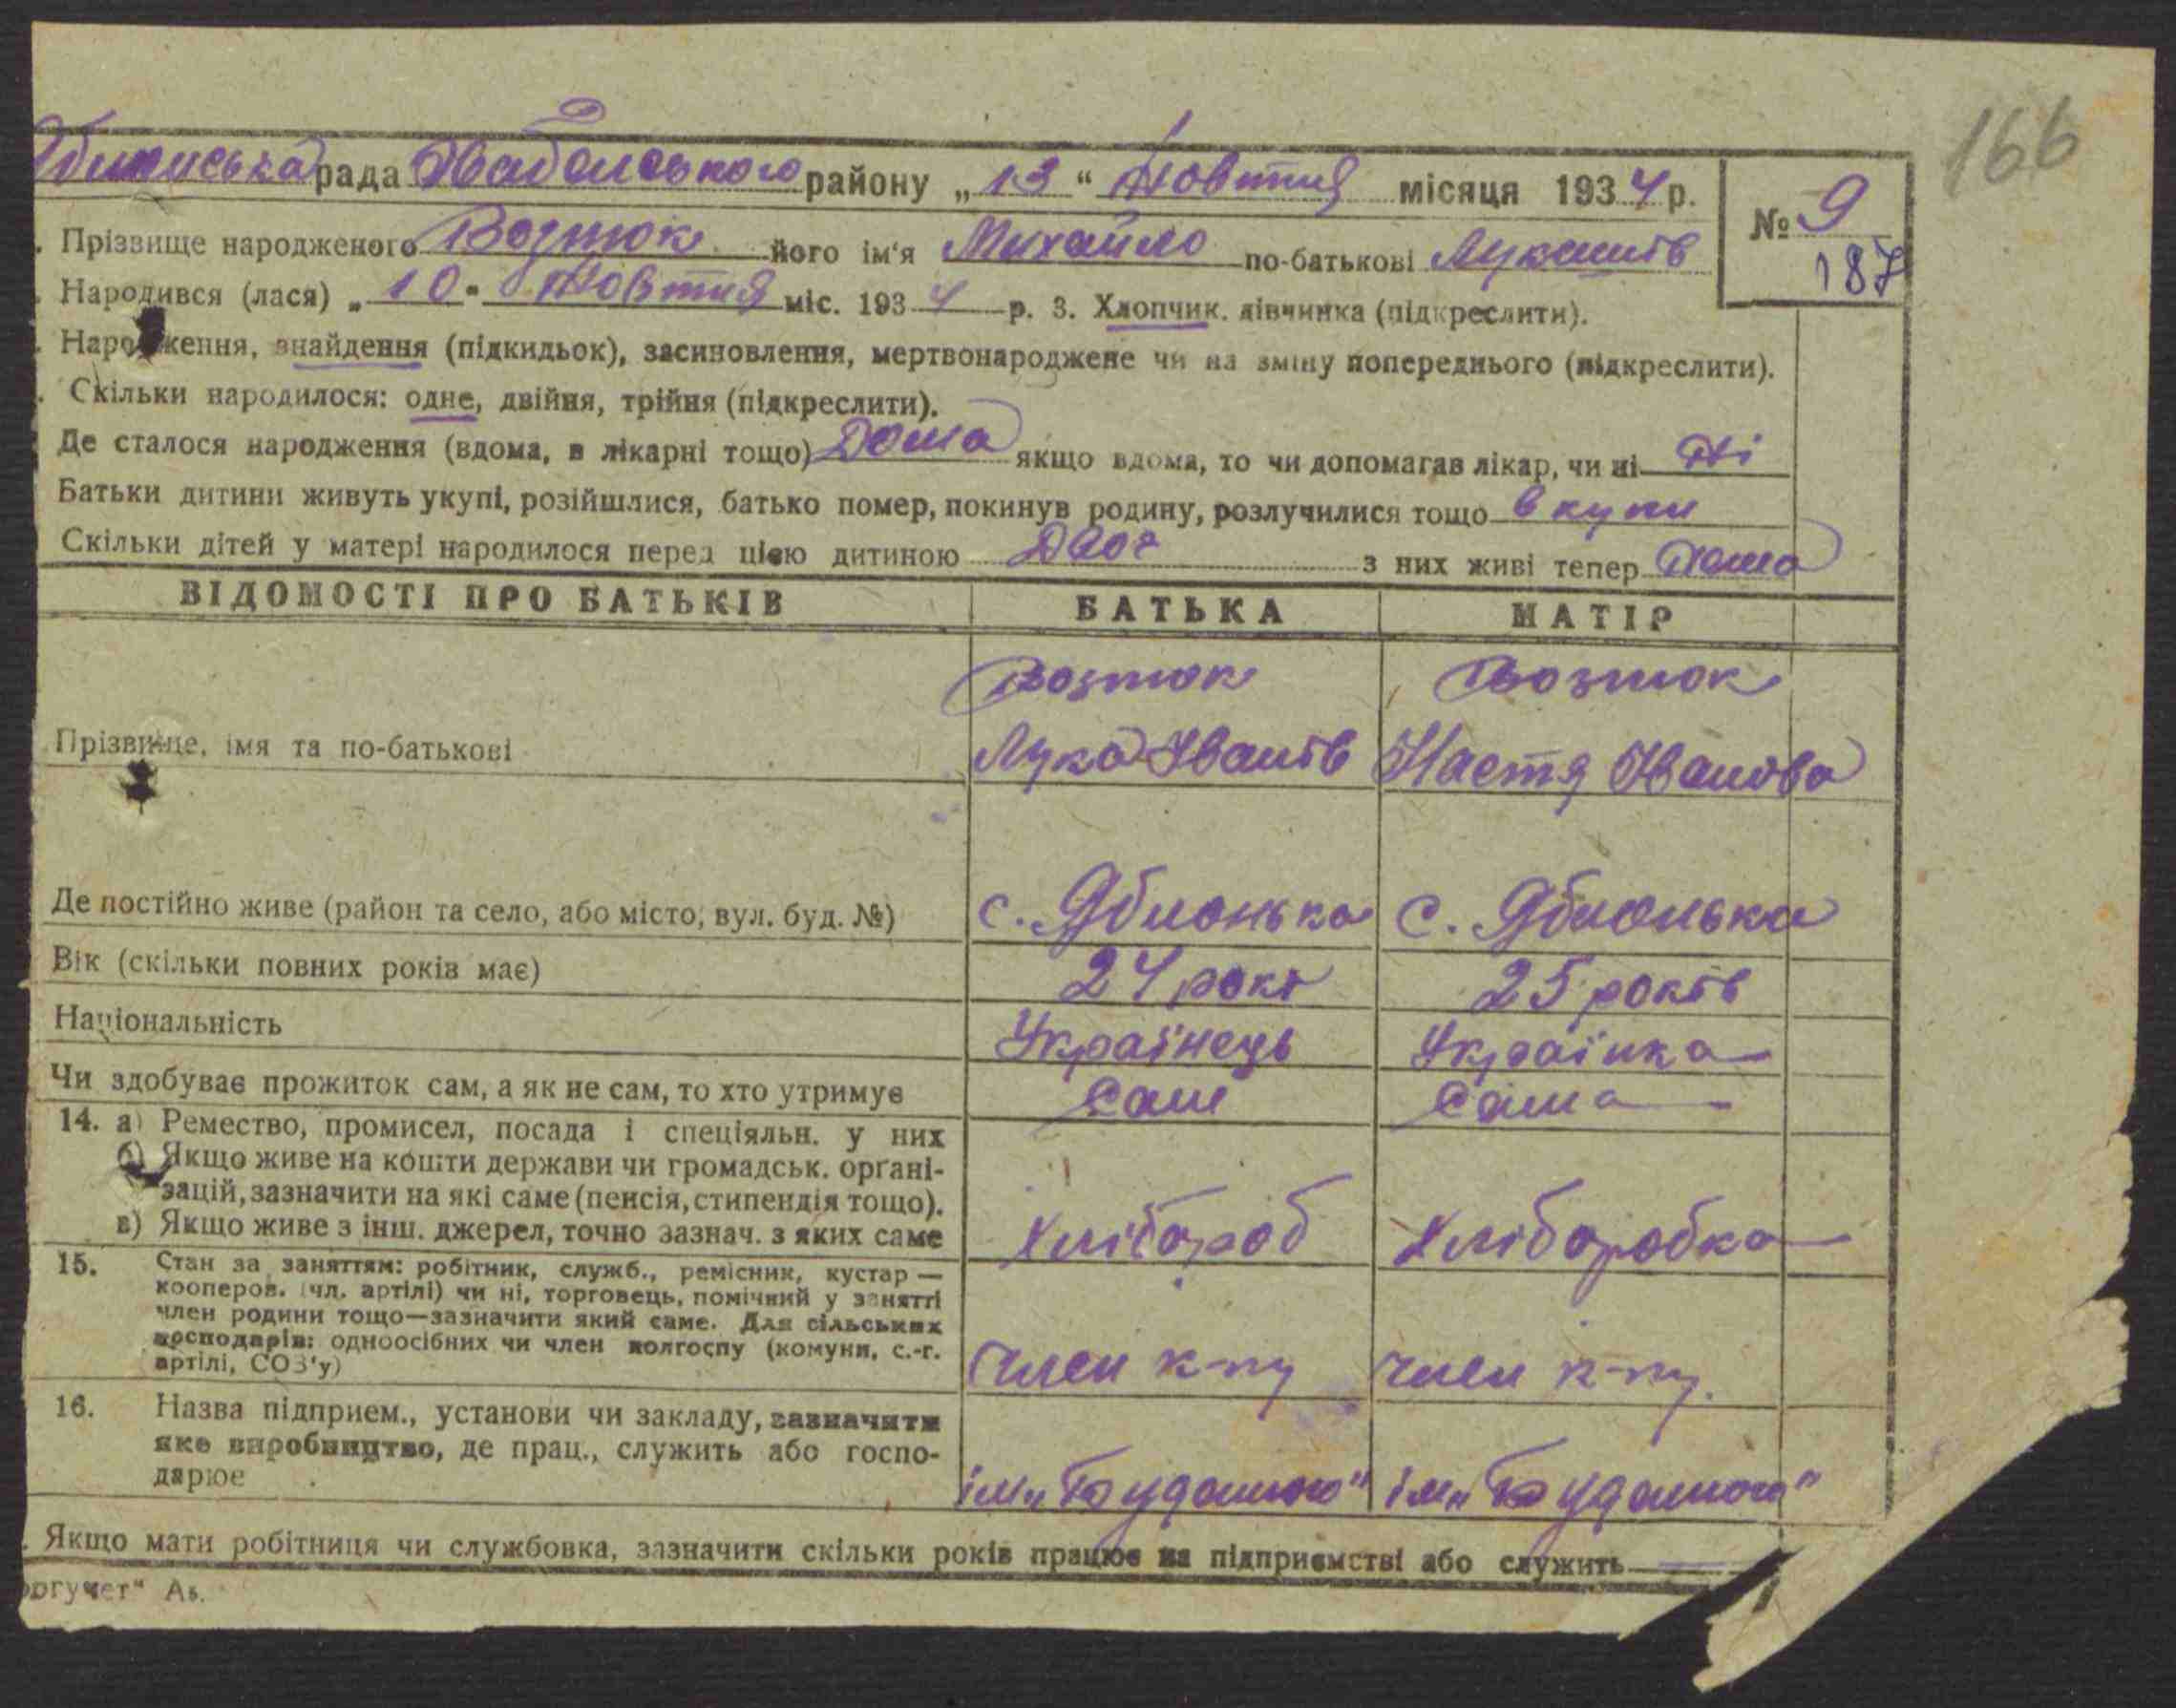 166
рада района району „ 13 “ Жовтня місяця 1934 р.
№ 9
187
. Прізвище народженого Возтюк його ім'я Михайло по-батькові
. Народився (лася) „ 10 " Жовтня міс. 1934 р. 3. Хлопчик. дівчинка (підкреслити).
. Народження, знайдення (підкидьок), засиновлення, мертвонароджене чи на зміну попереднього (підкреслити).
. Скільки народилося: одне, двійня, трійня (підкреслити).
Де сталося народження (вдома, в лікарні тощо) Дома якщо вдома, то чи допомагав лікар, чи ні Ні
Батьки дитини живуть укупі, розійшлися, батько помер, покинув родину, розлучилися тощо в купи
Скільки дітей у матері народилося перед цією дитиною Двоє з них живі тепер Нема
ВІДОМОСТІ ПРО БАТЬКІВ БАТЬКА МАТІР
Возтюк Возтюк
Прізвище, імя та по-батькові Лука Іванів Настя Іванова
Де постійно живе (район та село, або місто, вул. буд. №) с. Яблонька с. Яблонька
Вік (скільки повних років має) 24 рокі 25 років
Національність Українець Українка
Чи здобуває прожиток сам, а як не сам, то хто утримує Сам Сама
14. а) Ремество, промисел, посада і спеціяльн. у них
б) Якщо живе на кошти держави чи громадськ. орґані-
зацій, зазначити на які саме (пенсія, стипендія тощо).
в) Якщо живе з інш. джерел, точно зазнач. з яких саме Хлібороб Хліборобка
15. Стан за заняттям: робітник, служб., ремісник, кустар —
кооперов. (чл. артілі) чи ні, торговець, помічний у занятті
член родини тощо—зазначити який саме. Для сільських
господарів: одноосібних чи член колгоспу (комуни, с.-г.
артілі, СОЗ'у) Член к-пу член к-пу.
16. Назва підприєм., установи чи закладу, зазначити
яке виробництво, де прац., служить або госпо-
дарює ім „Будьоного" ім „Будьоного"
. Якщо мати робітниця чи службовка, зазначити скільки років працює на підприємстві або служить